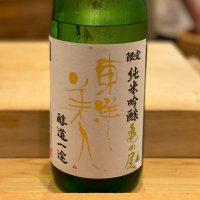 限定
純米吟醸
亀の尾
東洋美人
醇道一途